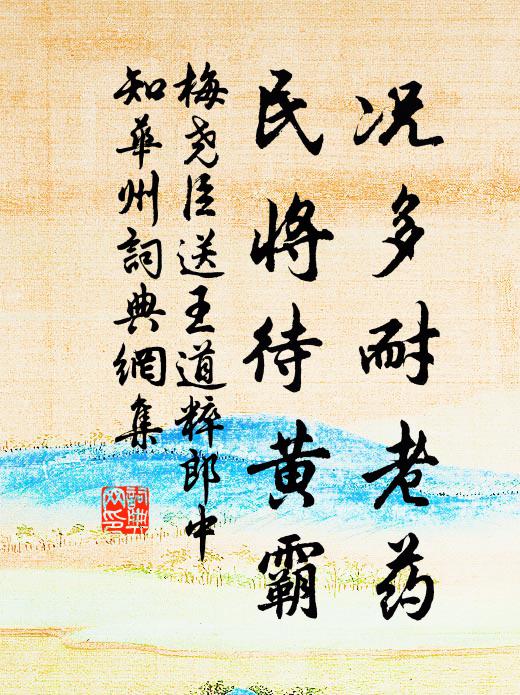 况多耐老药
民将待黄霸
梅尧臣送王道粹郎中
知華州詞典網集
詞典網印